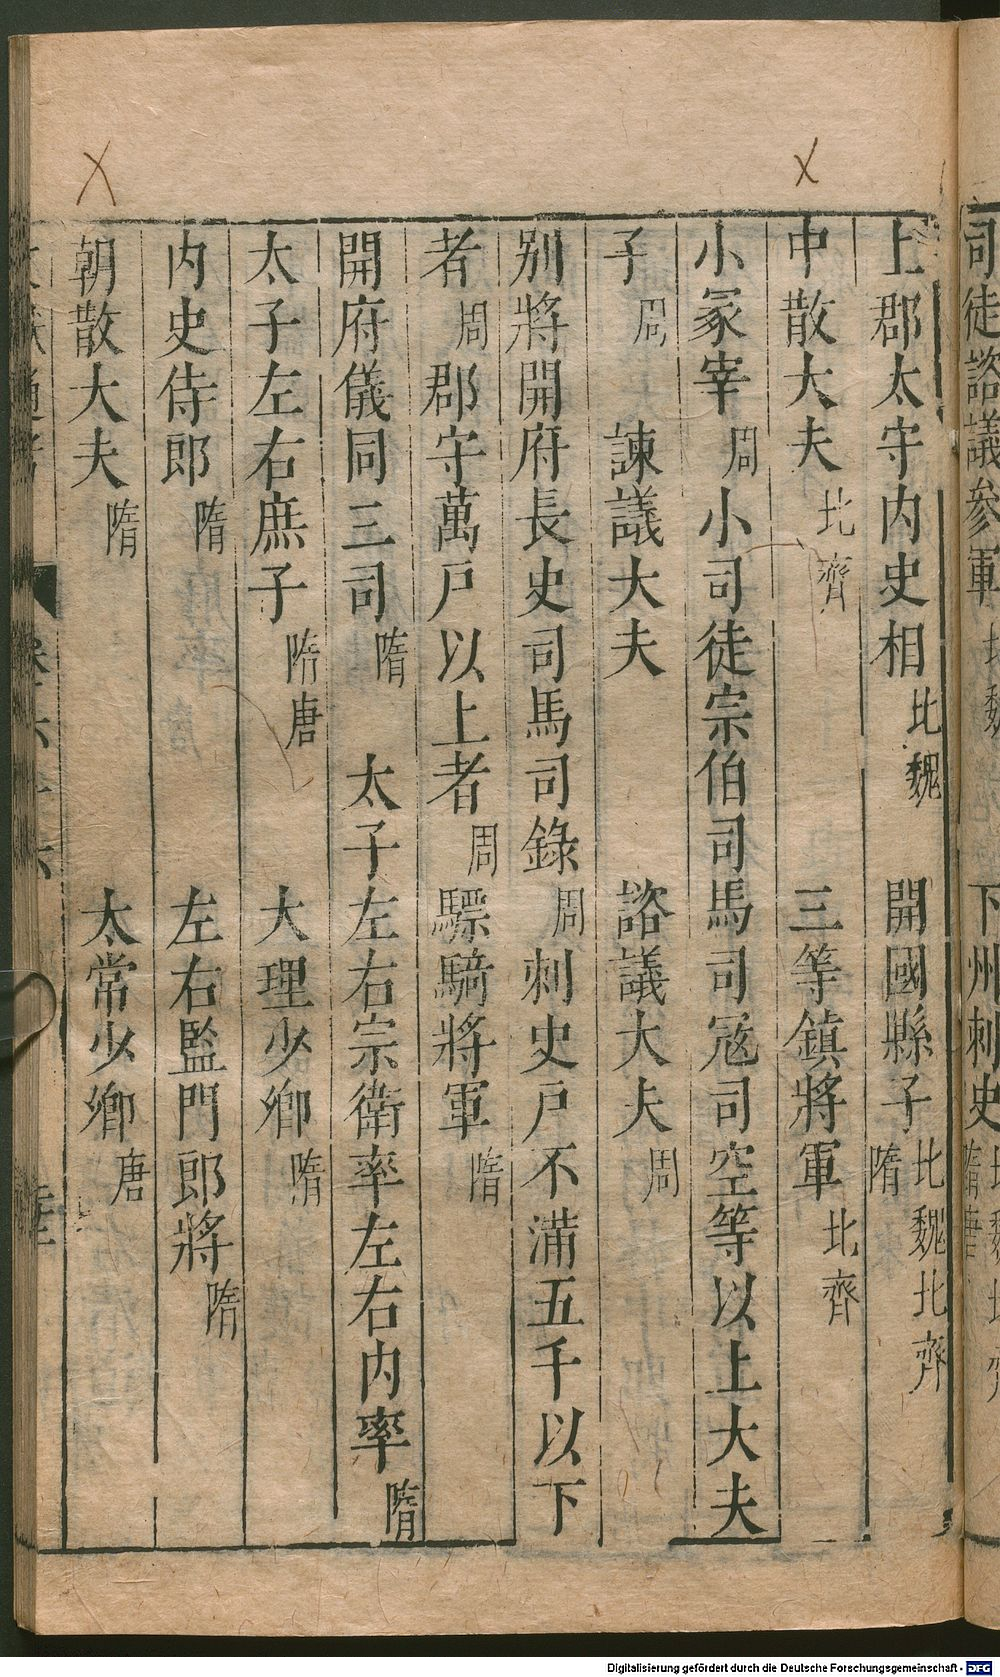 司徒諮議參軍 北魏 下州刺史 北魏北齊隋唐
上郡太守内史相 北魏 開國縣子 北魏北齊隋
中散大夫 北齊 三等鎮將軍 北齊
小冢宰 周 小司徒宗伯司馬司寇司空等以上大夫
子 周 諫議大夫 諮議大夫 周
别將開府長史司馬司錄 周 刺史戶不滿五千以下
者 周 郡守萬戶以上者 周 驃騎將軍 隋
開府儀同三司 隋 太子左右宗衛率左右内率 隋
太子左右庶子 隋唐 大理少卿 隋
内史侍郎 隋 左右監門郎將 隋
朝散大夫 隋 太常少卿 唐
Digitalisierung gefördert durch die Deutsche Forschungsgemeinschaft - DFG